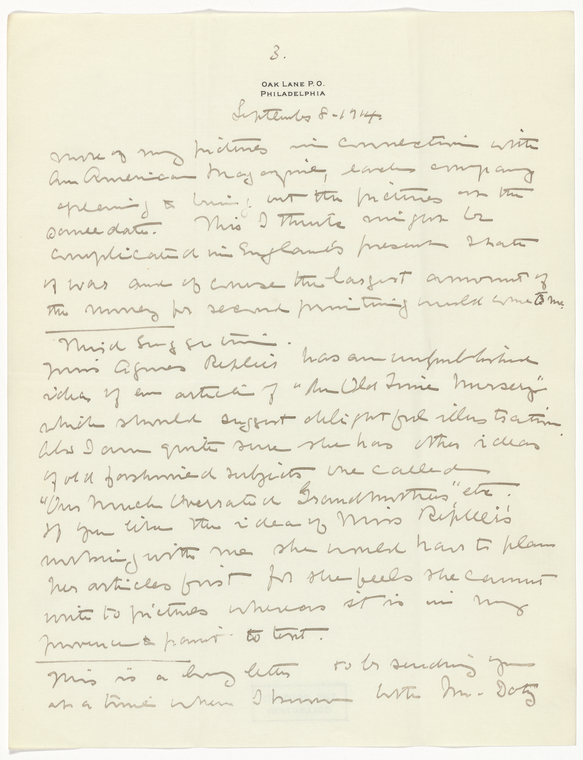 3.
OAK LANE P.O.
PHILADELPHIA
September 8 - 1914
more of my pictures in connection with
an American Magazine, each company
agreeing to bring out the pictures on the
same date. This I think might be
complicated in England's present state
of war and of course the largest amount of
the money for second printing would come to me.
Third Suggestion.
Miss Agnes Repplier has an unpublished
idea of an article of "An Old Time Nursery"
which should suggest delightful illustration.
Also I am quite sure she has other ideas
of old fashioned subjects one called
"Our Much Overrated Grandmothers," etc.
If you like the idea of Miss Repplier's
working with me she would have to plan
her articles first for she feels she cannot
write to pictures whereas it is in my
province to paint to text.
This is a long letter to be sending you
at a time when I know both Mr. Doty